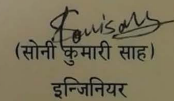 (सोनी कुमारी साह)
इन्जिनियर